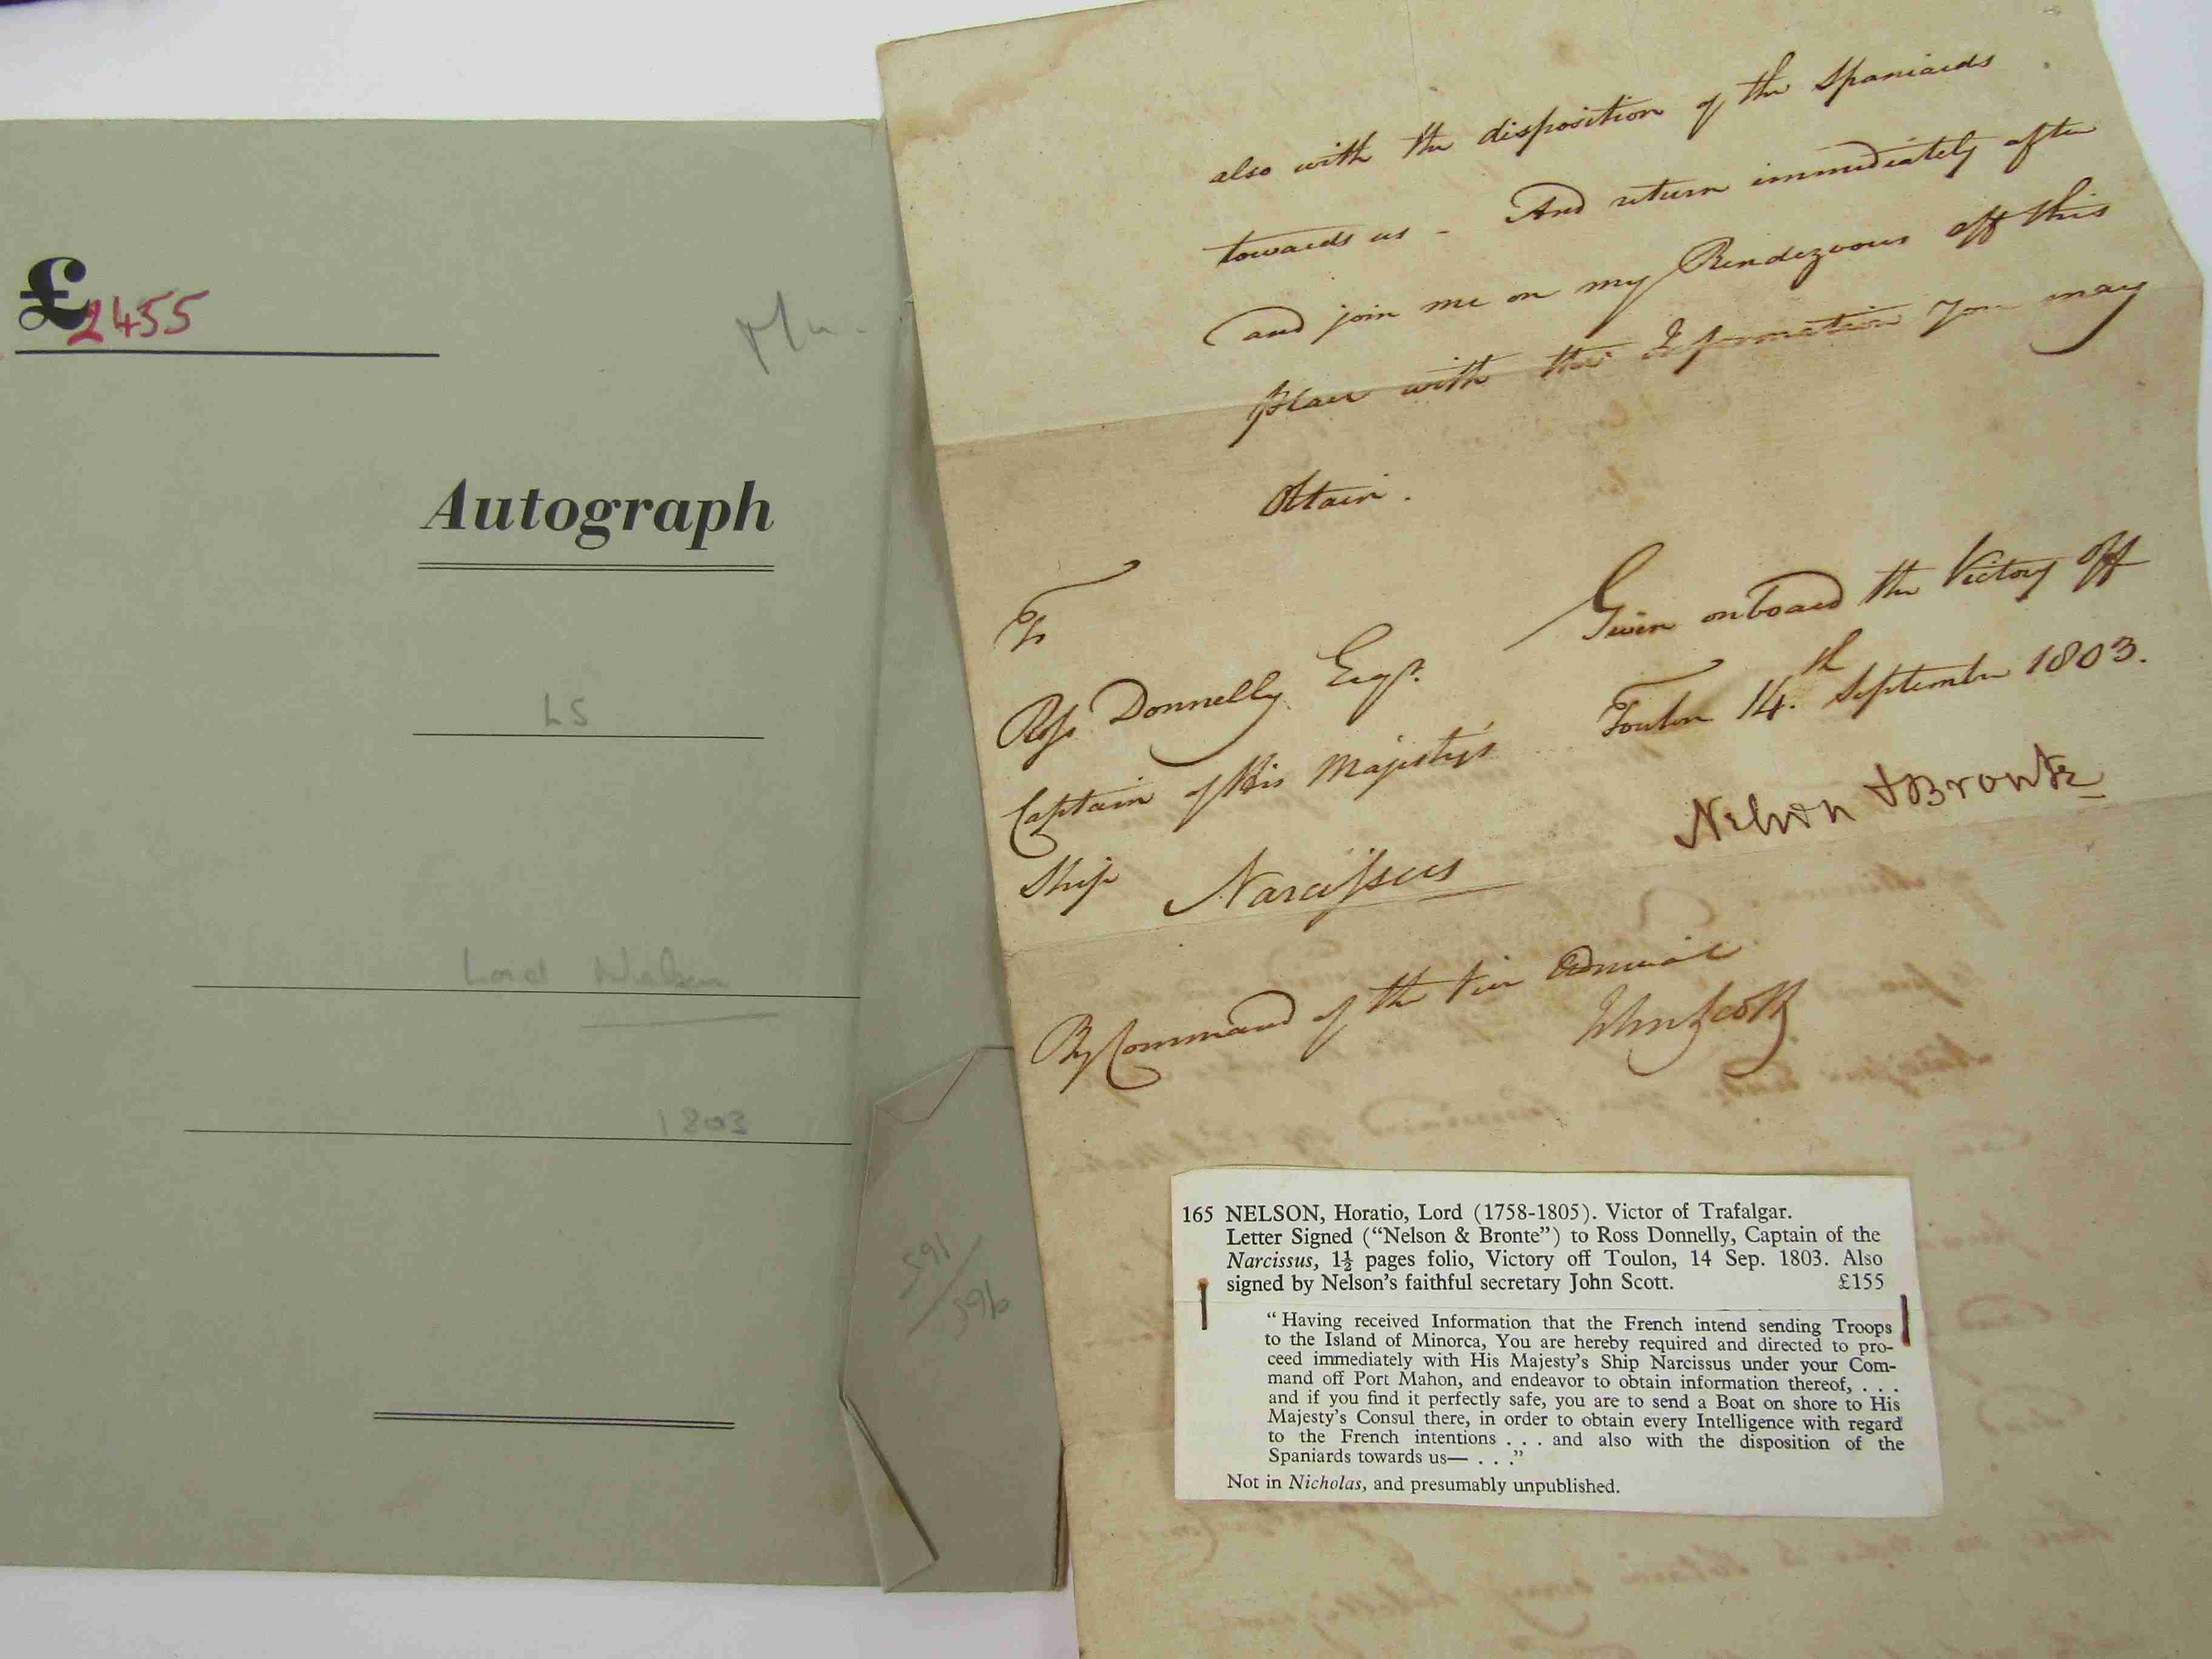 £2455
Autograph
LS
Lord Nelson
1803
165
965
also with the disposition of the Spaniards
towards us - And return immediately after
and join me on my Rendezvous off this
place with the Information you may
obtain.
To
Ross Donnelly Esqr.
Captain of His Majesty's
Ship Narcissus
Given onboard the Victory off
Toulon 14th September 1803.
Nelson & Bronte
By Command of the Vice Admiral
John Scott
165 NELSON, Horatio, Lord (1758-1805). Victor of Trafalgar.
Letter Signed (“Nelson & Bronte”) to Ross Donnelly, Captain of the
Narcissus, 1½ pages folio, Victory off Toulon, 14 Sep. 1803. Also
signed by Nelson's faithful secretary John Scott. £155
“Having received Information that the French intend sending Troops
to the Island of Minorca, You are hereby required and directed to pro-
ceed immediately with His Majesty's Ship Narcissus under your Com-
mand off Port Mahon, and endeavor to obtain information thereof, . . .
and if you find it perfectly safe, you are to send a Boat on shore to His
Majesty's Consul there, in order to obtain every Intelligence with regard
to the French intentions . . . and also with the disposition of the
Spaniards towards us— . . .”
Not in Nicholas, and presumably unpublished.